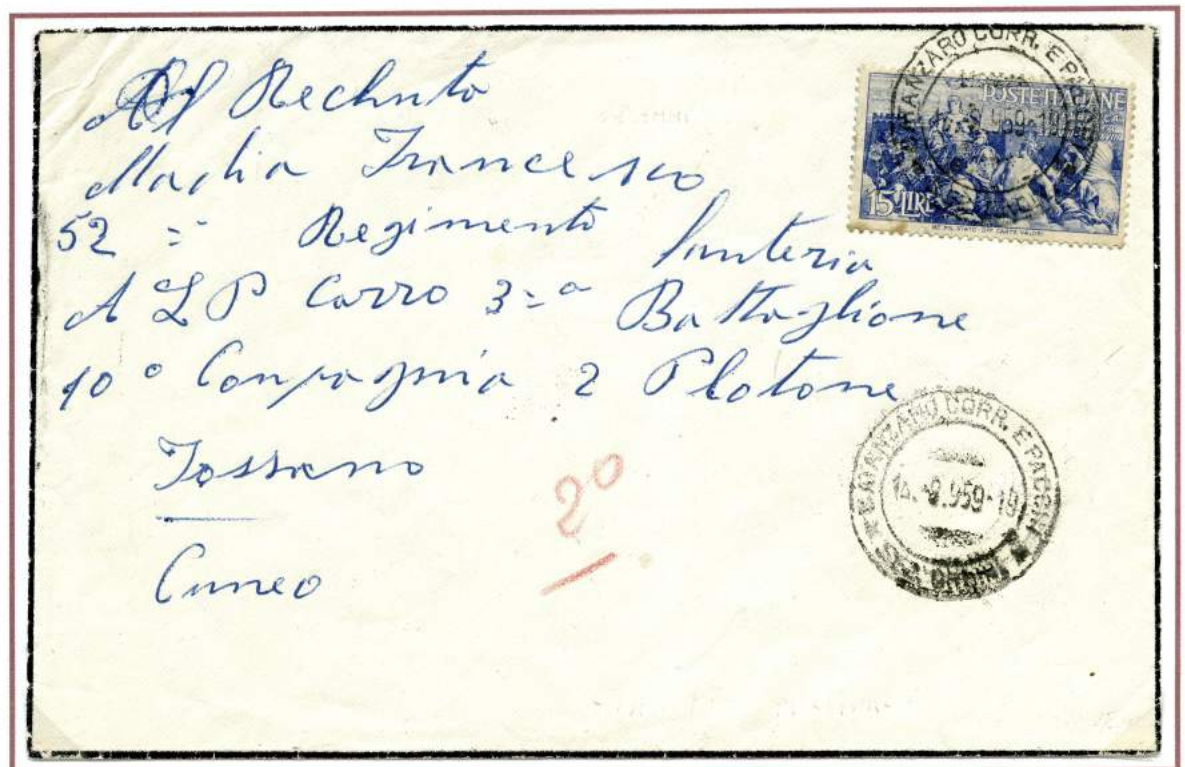 Al Rechuto
Maglia Francesco
52 = Regimento fanteria
A L P Carro 3=a Battaglione
10° Conpagnia 2 Plotone
Fossano
Cuneo
2°
POSTE ITALIANE
15 LIRE
CATANZARO CORR. E PACCHI
CATANZARO CORR. E PACCHI
.959-19